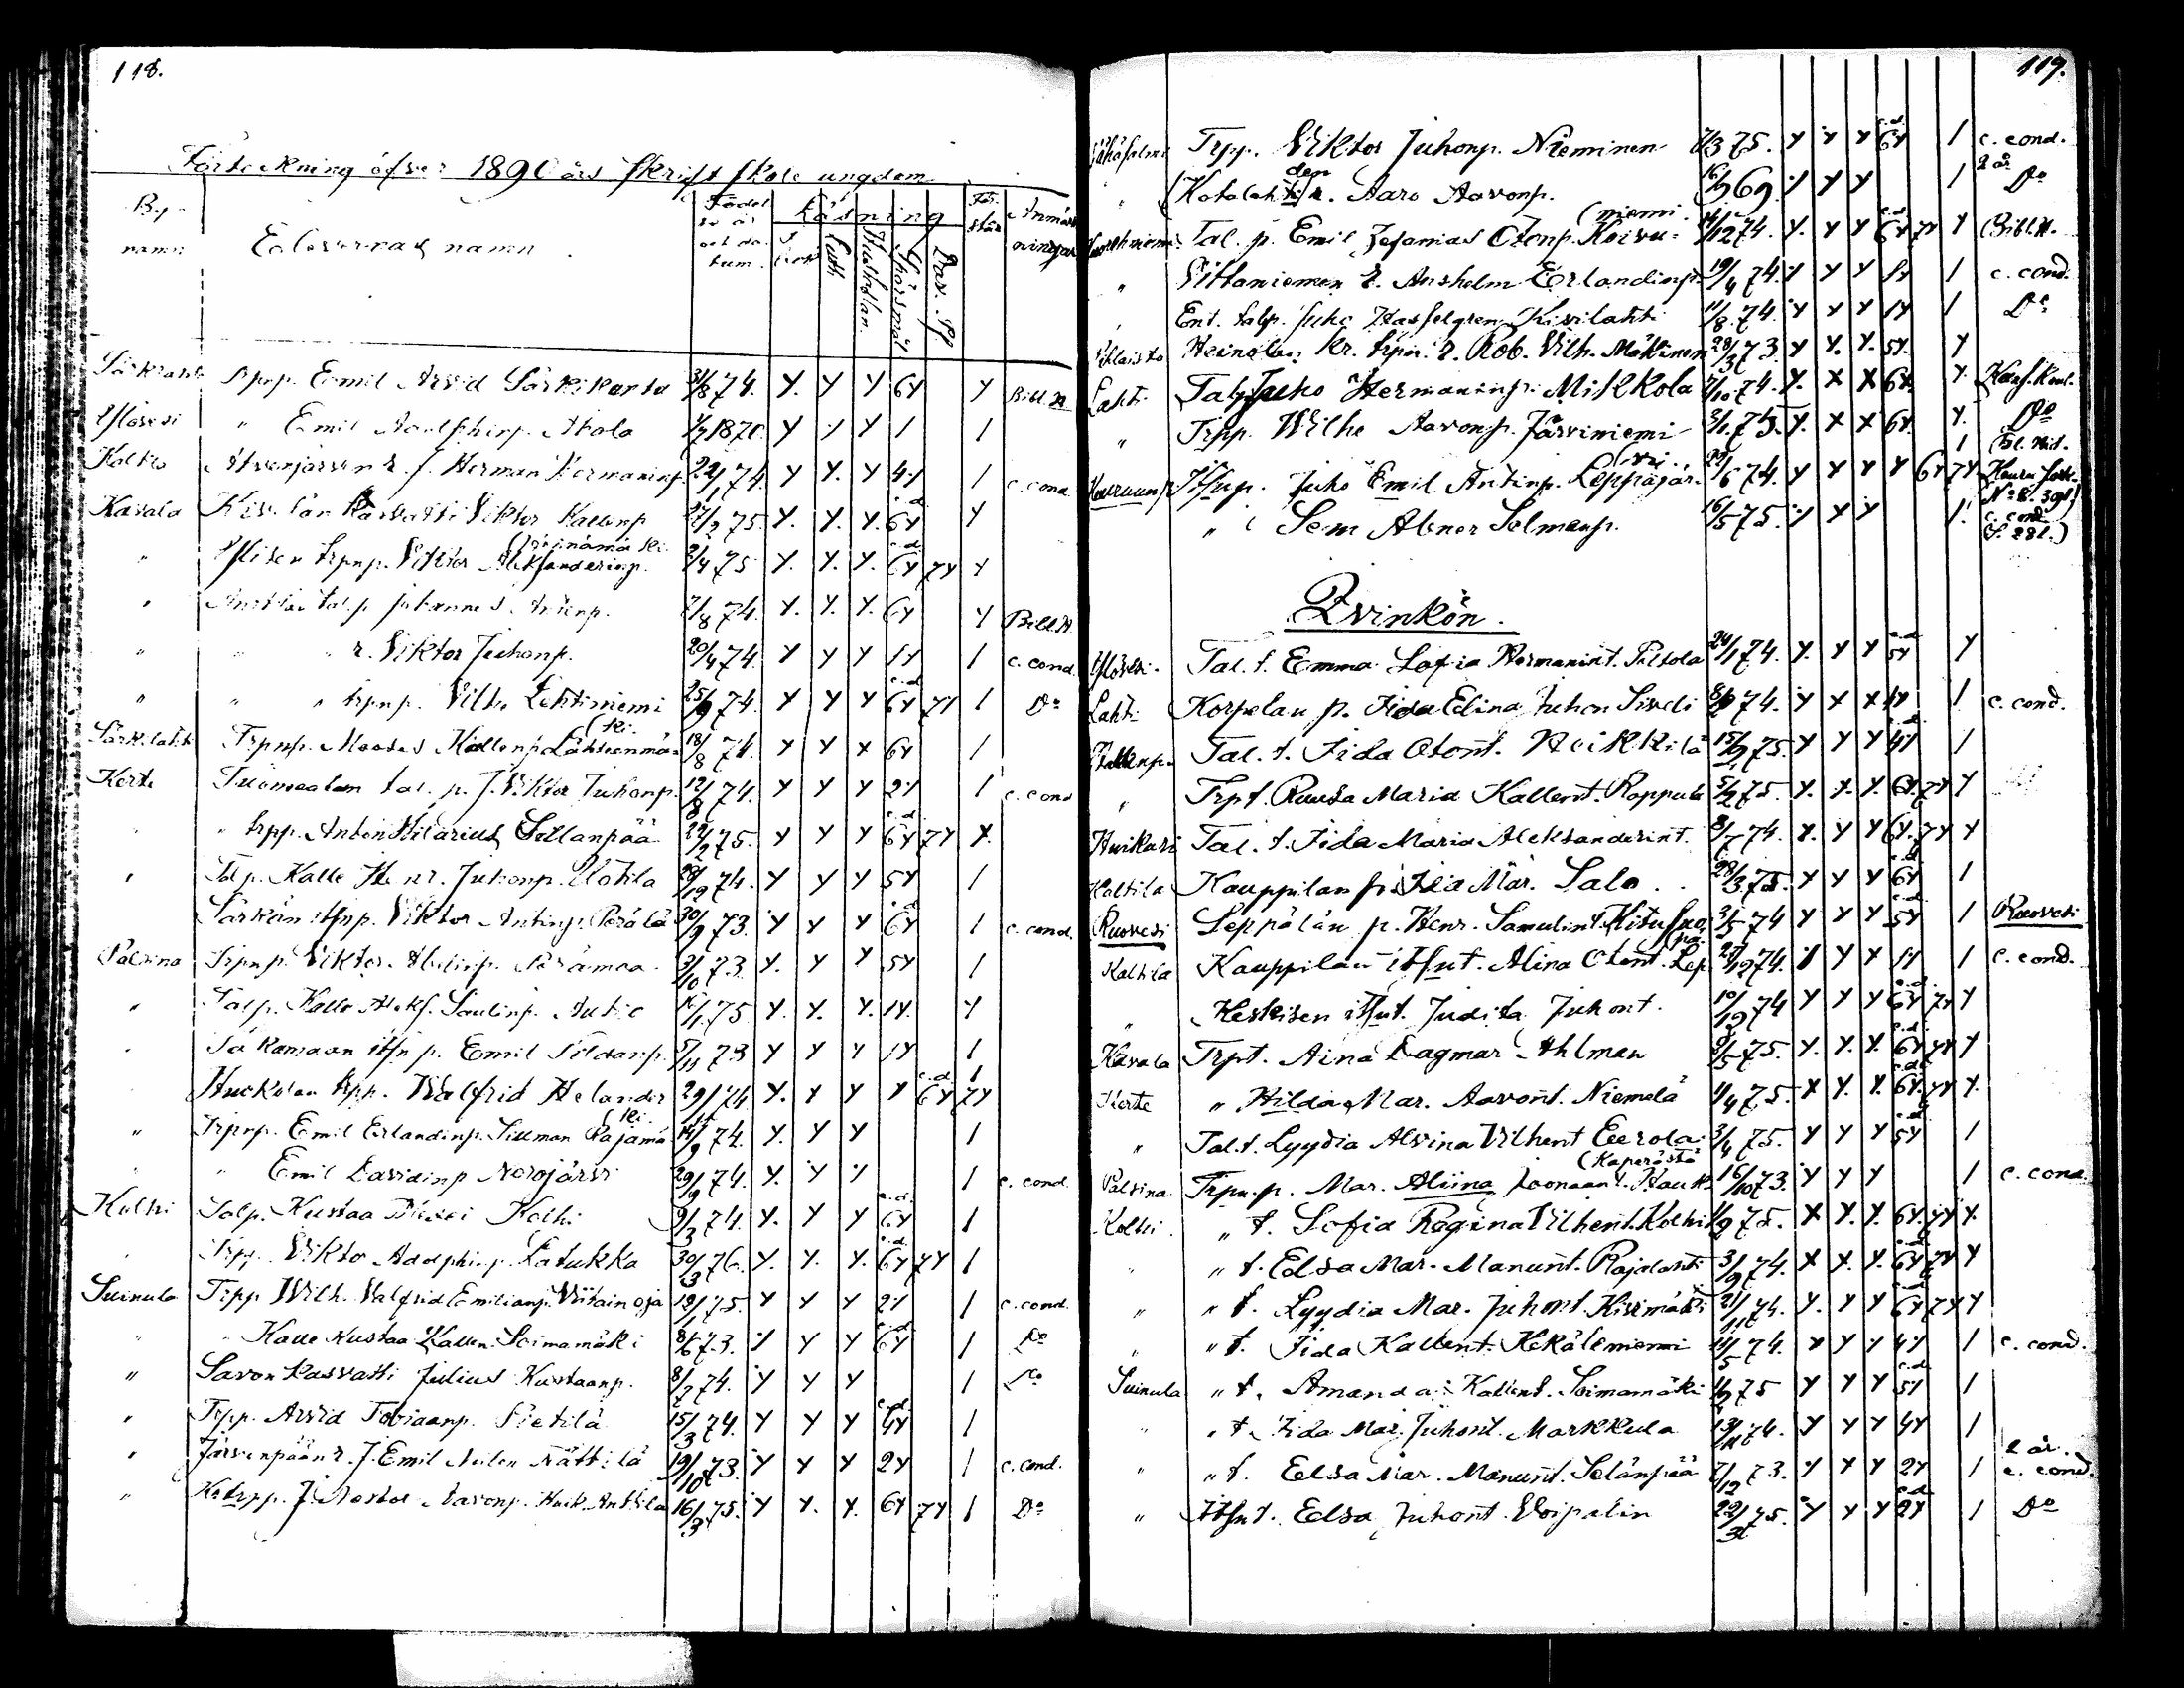 118.
Förteckning öfver 1890 års skriftskole ungdom
By-
namn
Elevernas namn
Födel
se år
och da-
tum.
Läsning
I
bok
Luth.
Hustaflan
Spörsmål
Dav. Ps.
För-
stån
Anmärk
ningar
Emil Arvid Särkikanta 31/8 74. Y. Y Y 6Y Y Bibl. H
Ylöjesi " Emil Adolfsinp. Ahola 1870. Y Y Y 1 1
Kolkis r. J. Herman Hermaninp. 22/1 74. Y Y. Y 4Y 1 c. cond.
Kavala Kasvatti Viktor Kallenp 27/2 75. Y. Y. Y. 6Y Y
" trpnp. Viktor Aleksanderinp. 2/4 75 Y. Y. Y. 6Y 7Y Y
" Anttilan talp. Johannes Anttinp. 2/8 74. Y. Y. Y. 6Y Y Bibl. H.
" " r. Viktor Juhonp. 20/4 74. Y Y Y 1Y 1 c. cond
" " " trpnp. Vilh. Lehtiniemi 25/9 74. Y Y Y 6Y 7Y 1 Do
Särkilahti Trpnp. Mooses Kallenp. Lähteenmä- (ki. 18/8 74. Y Y x 6Y 1
Kerte Tuomaalan tal. p. J. Viktor Juhonp. 12/8 74. Y Y Y 2Y 1 c. cond
" trpp. Anton Hilarius Sillanpää 22/2 75. Y Y Y 6Y 7Y Y.
" Talp. Kalle Henr. Juhonp. Uotila 29/12 74. Y Y Y 5Y 1
Särkän itsnp. Viktor Antinp. Perälä 30/9 73. Y Y Y 6Y 1 c. cond.
Palsina Trpnp. Viktor Abelinp. Perämaa 3/10 73. Y. Y Y 5Y 1
" Talp. Kalle Aleks. Saulinp. Autio 75 Y. Y. Y. 1Y. Y
" itsn p. Emil 5/11 73 Y Y Y 1Y 1
Huckolan trpp. Walfrid Helander 29/11 74 Y. Y Y Y 6Y 7Y
" Trpnp. Emil Erlandinp. Sillman Rajamä- (ki. 14/9 74. Y. Y Y 1
" " Emil Davidinp Nerojärvi 29/9 74. Y. Y Y 1 c. cond.
Kolhi Talp. Kustaa Kolhi 9/3 74. Y. Y Y 6Y 1
" Trpp. Viktor Adolphinp. Latukka 30/3 76. Y. Y. Y. 6Y 7Y 1
Suinula Trpp Wilh. Valfrid Emilianp. Viitainoja 18/1 75. Y Y Y 2Y 1 c. cond.
" " Kalle Kustaa Kallen. Soimamäki 8/6 73. Y Y Y 6Y 1 Do
" Savon kasvatti Julius Kustaanp. 8/2 74. Y Y Y 1 Do
" Trpp. Arvid Tobiaanp. Pietilä 15/3 74. Y Y Y 4Y 1
" Järvenpään r. J. Emil Nätti lä 19/10 73. Y Y Y 2Y 1 c. cond.
" J. Nestor Aavonp. Anttila 16/3 75. Y Y. Y. 6Y 7Y 1 Do
119.
Trpp. Viktor Juhonp. Nieminen 7/3 75. Y Y Y 6Y 1 c. cond.
" (Kotalahden r. Aaro Aavonp. 16/9 69. Y Y Y 1 2 år Do
Tal. p. Emil Zefanias Otonp. Koivu- (niemi. 14/12 74. Y. Y Y 6Y 7Y Y (Bibl. H.
" r. Anshelm Erlandinp. 19/4 74. Y Y Y 1Y 1 c. cond.
Ent. talp. Juho Hasselgren Kivilahti 11/8 74. Y Y Y 1Y 1 Do
Heinolan kr. trpn. r. Rob. Vilh. Mäkinen 28/3 73. Y Y. Y. 5Y. Y
Lahti Talp Juho Hermaninp. Mikkola 7/10 74. Y. X X 6Y. Y.
" Trpp. Wilho Aavonp. Järviniemi 3/1 75. Y. X X 6Y. Y. Do
Keuruun p. Itsnp. Juho Emil Antinp. Leppäjär- (vi. 22/6 74. Y Y Y Y 6Y 7Y
" " Sem Abner Selmanp. 16/5 75. Y Y Y 1. c. cond
Qvinkön.
Tal. t. Emma Sofia Hermanint. Piltola 24/1 74. Y. Y Y 5Y Y
Lahti Korpelan p. Iida Edina Juhon Siveli 8/2 74. Y x x 4Y 1 c. cond.
Tal. t. Iida Otont. Heikkilä 15/9 75. Y Y Y 4Y 1
" Trpt. Ruusa Maria Kallent. Roppula 5/2 75. Y. Y. Y. 6Y. 7Y Y
Huikari Tal. t. Iida Maria Aleksanderint. 8/7 74. Y. Y Y 6Y. 7Y Y
Kaltila Kauppilan p. Iida Mar. Salo 28/3 75. Y Y Y 6Y 1
Ruovesi Leppälän p. Henr. Samulint. 3/5 74 Y Y Y 5Y 1 Ruovesi
Kaltila Kauppilan itsnt. Alina Otont. Lep- (pä. 27/12 74. Y Y Y 1Y 1 c. cond.
" Keskisen itsnt. Judita Juhont. 10/12 74 Y Y Y 6Y 7Y Y
Kavala Trpt. Aina Dagmar Ahlman 9/5 75. Y. Y. Y. 6Y 7Y Y
Kerte " Hilda Mar. Aavont. Niemelä 4/4 75. x Y. Y. 6Y. 7Y Y.
" Tal. t. Lyydia Alvina Vilhent Eerola 3/4 75. Y Y Y 5Y 1
Palsina Trpn. p. Mar. Aliina Joonaant. (Kaperästä 16/10 73. Y Y Y 1 c. cond.
Kolhi " t. Sofia Regina Vilhent. Kolhi 1/2 75. X Y. Y. 6Y. 7Y Y.
" " t. Edsa Mar. Manunt. Rajalahti 3/9 74. X Y. Y. 6Y 7Y Y
" " t. Lyydia Mar. Juhont. Kivimäki 21/11 74. Y. Y Y 6Y 7Y Y
" " t. Iida Kallent. Kekäleniemi 11/5 74. Y Y Y 4Y 1 c. cond.
Suinula " t. Amanda Kallent. Soimamäki 1/2 75 Y Y Y 5Y 1
" " t. Iida Mar. Juhont. Markkula 13/11 74. Y Y Y 4Y 1
" " t. Edsa Mar. Manunt. Selänpää 7/12 73. Y Y Y 2Y 1 2 år. c. cond.
" Itsnt. Edsa Juhont. Voipalin 22/3 75. Y Y Y 2Y 1 Do